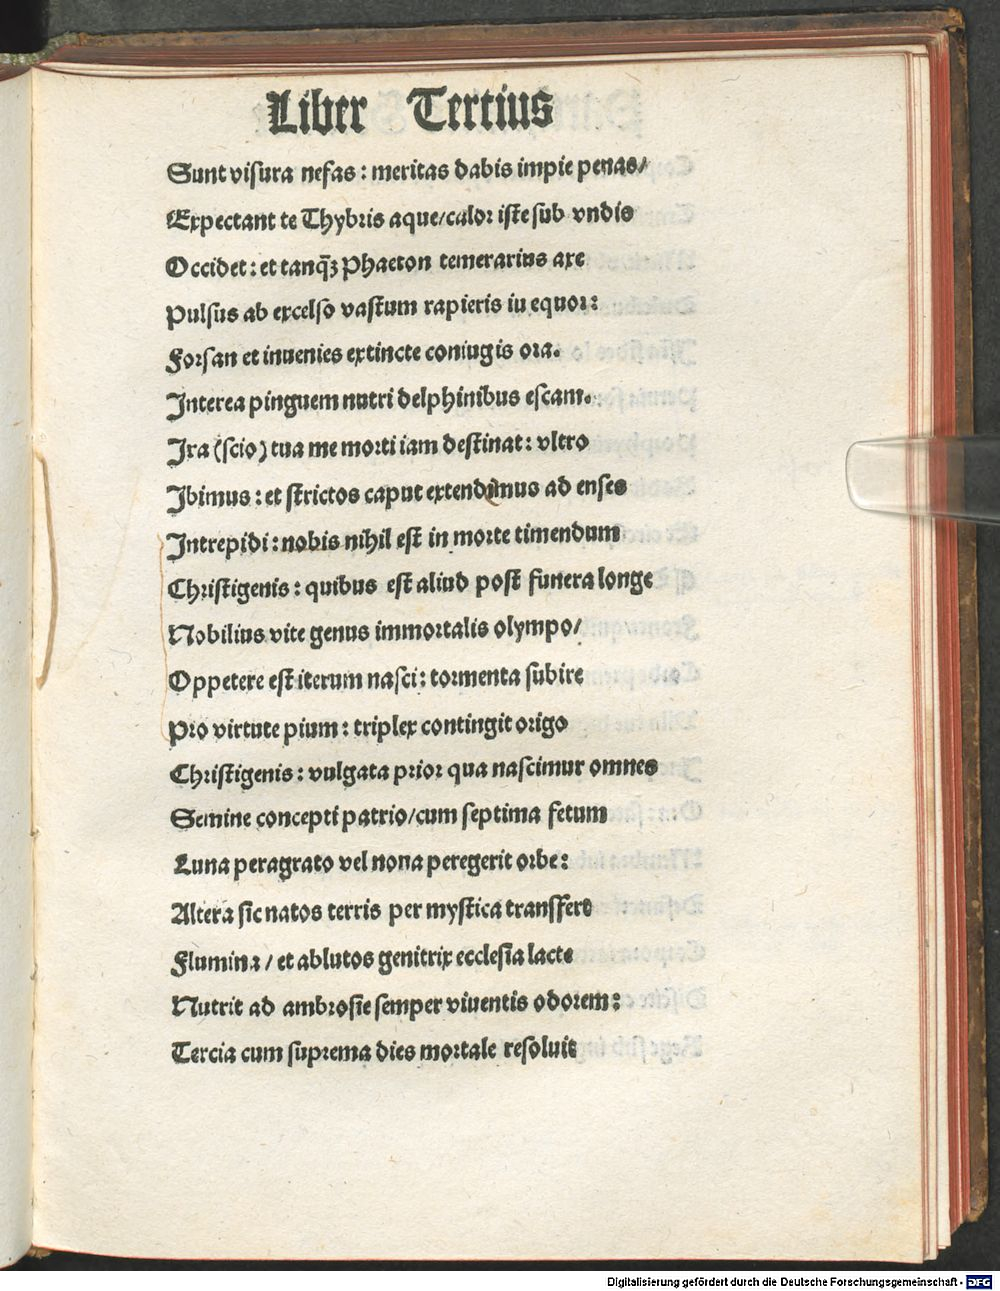 Liber Tertius
Sunt visura nefas: meritas dabis impie penas/
Expectant te Thybris aque/calor iste sub vndis
Occidet: et tanqꝫ Phaeton temerarius axe
Pulsus ab excelso vastum rapieris in equor:
Forsan et inuenies extincte coniugis ora.
Interea pinguem nutri delphinibus escam.
Ira (scio) tua me morti iam destinat: vltro
Ibimus: et strictos caput extendimus ad enses
Intrepidi: nobis nihil est in morte timendum
Christigenis: quibus est aliud post funera longe
Nobilius vite genus immortalis olympo/
Oppetere est iterum nasci: tormenta subire
Pro virtute pium: triplex contingit origo
Christigenis: vulgata prior qua nascimur omnes
Semine concepti patrio/cum septima fetum
Luna peragrato vel nona peregerit orbe:
Altera sic natos terris per mystica transfert
Flumina/ et ablutos genitrix ecclesia lacte
Nutrit ad ambrosie semper viuentis odorem:
Tercia cum suprema dies mortale resoluit
Digitalisierung gefördert durch die Deutsche Forschungsgemeinschaft - DFG